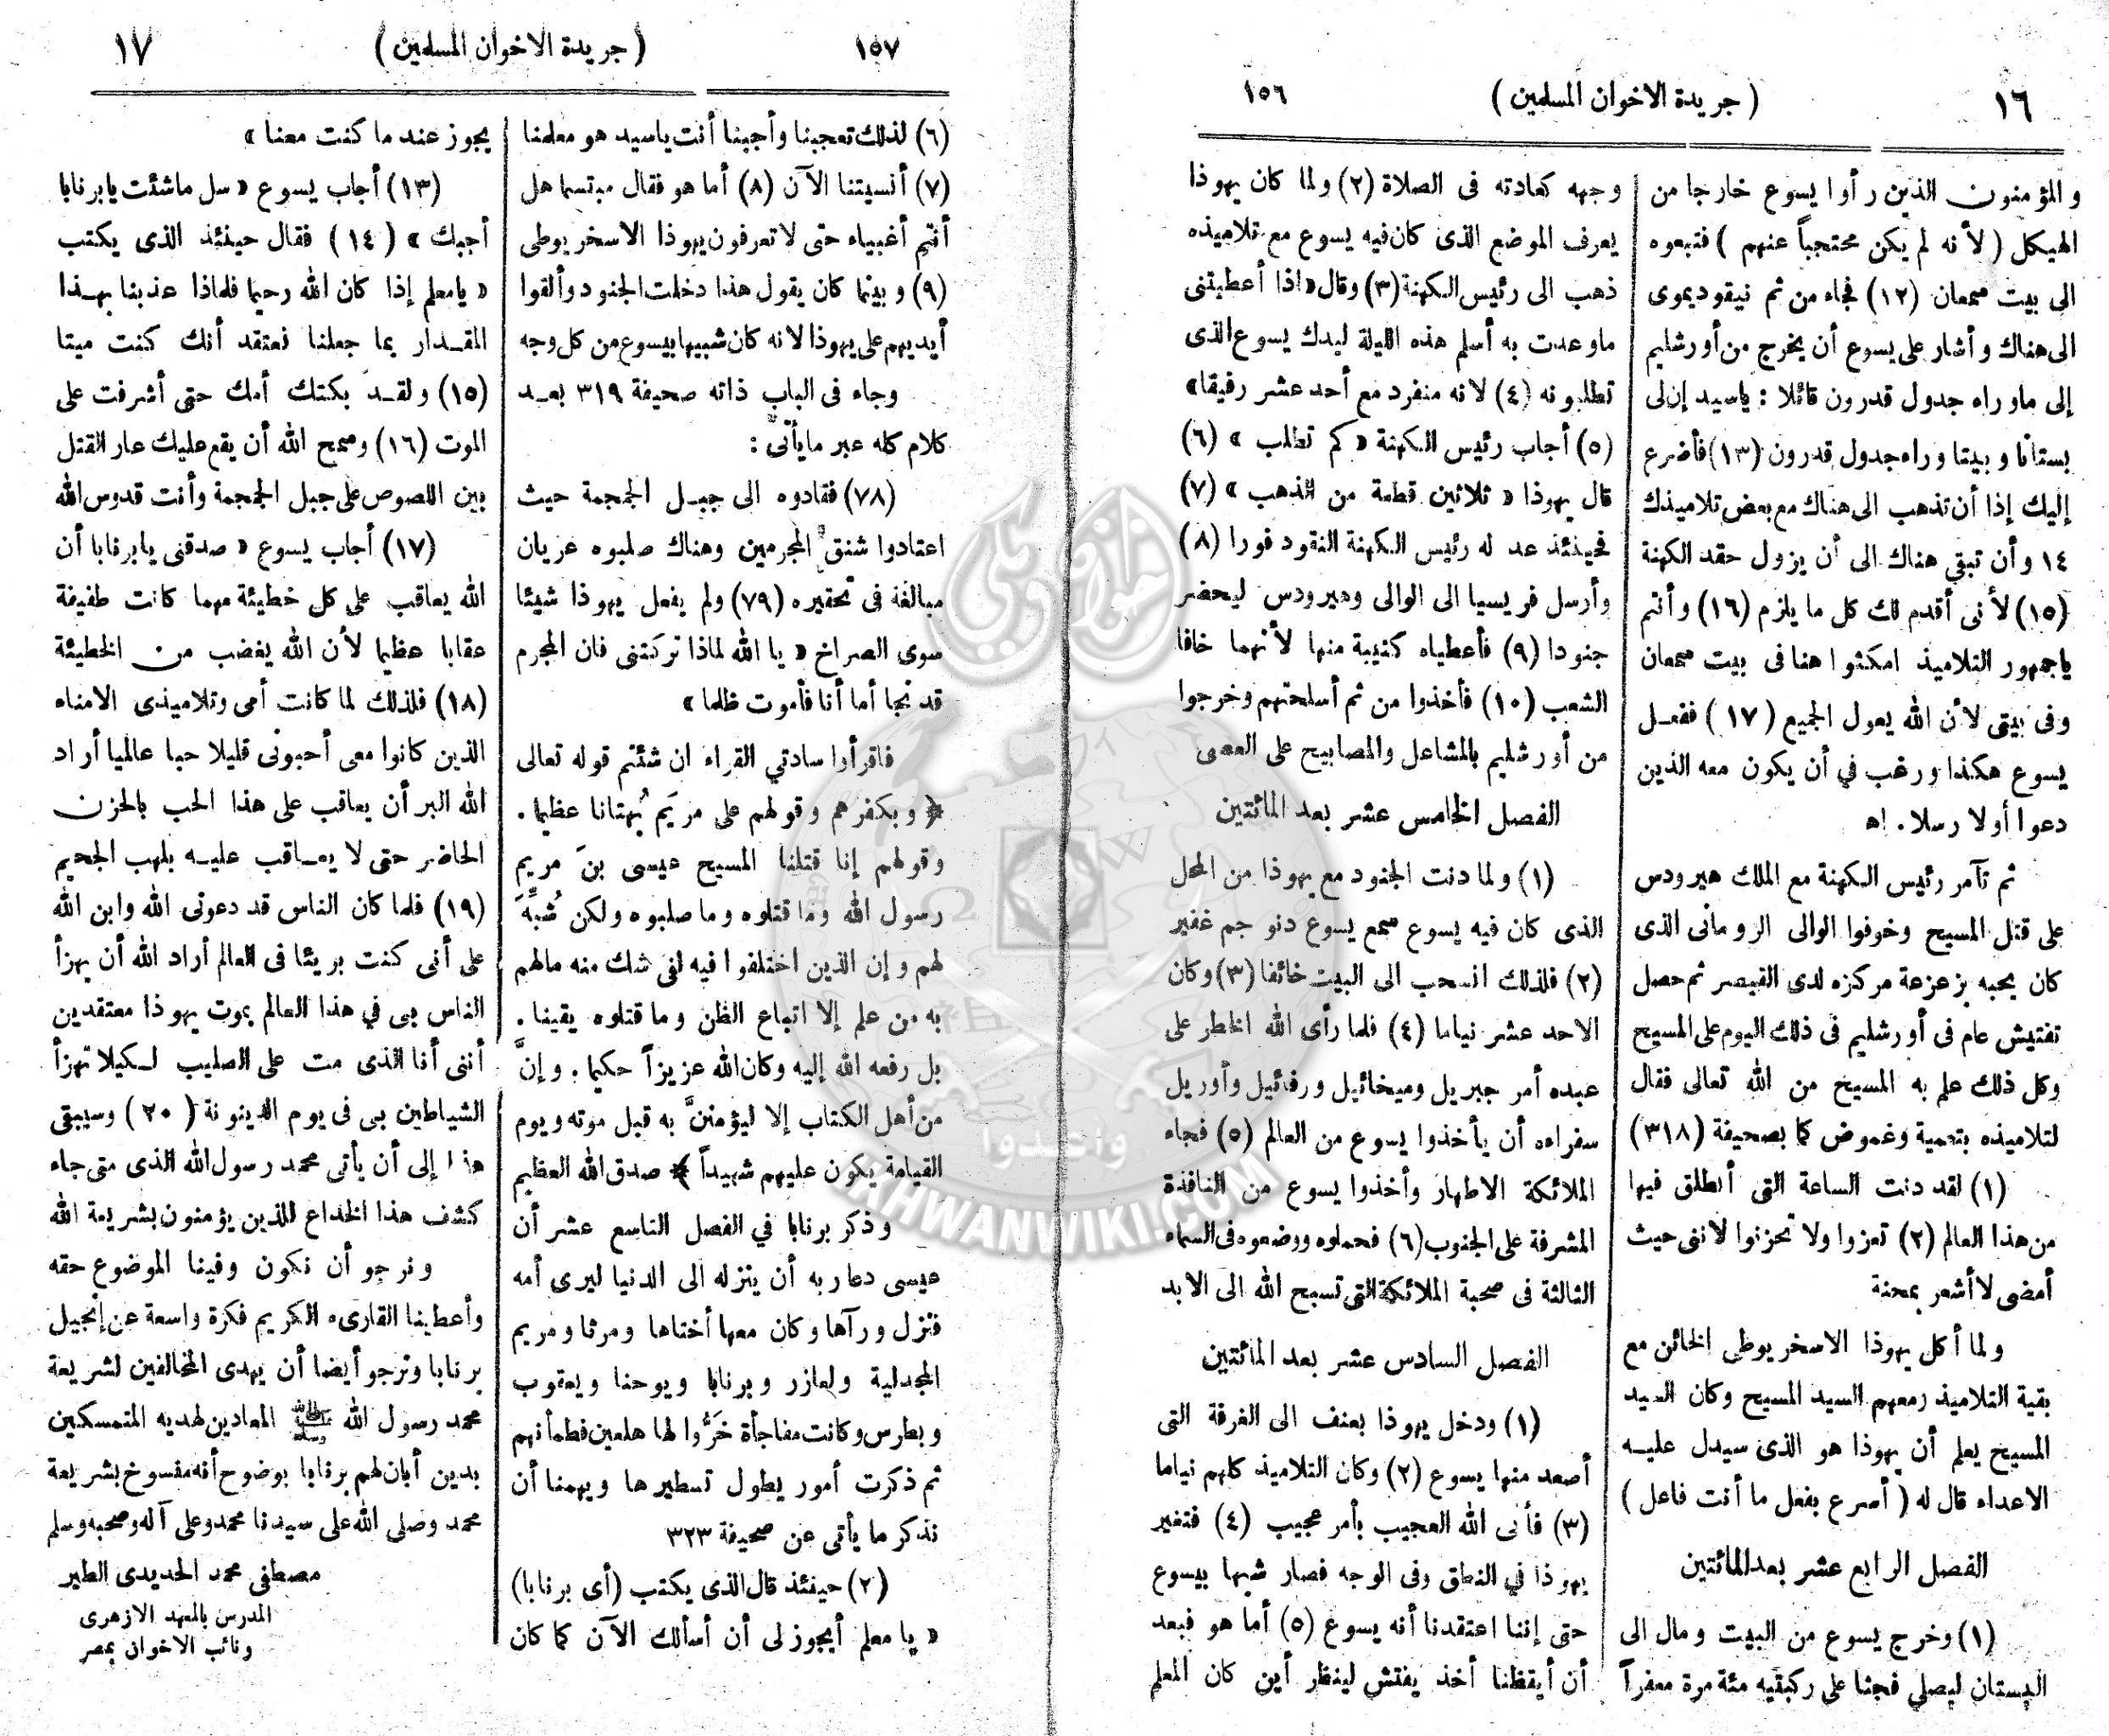 ١٦
( جريدة الاخوان المسلمين )
١٥٦
والمؤمنون الذين رأوا يسوع خارجا من
الهيكل ( لأنه لم يكن محتجباً عنهم ) فتبعوه
الى بيت سمعان (١٢) فجاء من ثم نيقوديموى
الى هناك وأشار على يسوع أن يخرج من أورشليم
إلى ماوراء جدول قدرون قائلا : ياسيد إن لى
بستانا وبيتا وراء جدول قدرون (١٣) فأضرع
إليك إذا أن تذهب الى هناك مع بعض تلاميذك
١٤ وأن تبقى هناك الى أن يزول حقد الكهنة
(١٥) لأنى أقدم لك كل ما يلزم (١٦) وأنتم
ياجمهور التلاميذ امكثوا هنا فى بيت سمعان
وفى بيتى لأن الله يعول الجميع (١٧) ففعل
يسوع هكذا ورغب في أن يكون معه الذين
دعوا أولا رسلا . اه
ثم تآمر رئيس الكهنة مع الملك هيرودس
على قتل المسيح وخوفوا الوالى الرومانى الذى
كان يحبه بزعزعة مركزه لدى القيصر ثم حصل
تفتيش عام فى أورشليم فى ذلك اليوم على المسيح
وكل ذلك علم به المسيح من الله تعالى فقال
لتلاميذه بتعمية وغموض كما بصحيفة (٣١٨)
(١) لقد دنت الساعة التى أنطلق فيها
من هذا العالم (٢) تعزوا ولا تحزنوا لاننى حيث
أمضى لا أشعر بمحنة
ولما أكل يهوذا الاسخريوطى الخائن مع
بقية التلاميذ ومعهم السيد المسيح وكان السيد
المسيح يعلم أن يهوذا هو الذى سيدل عليه
الاعداء قال له ( أسرع بفعل ما أنت فاعل )
الفصل الرابع عشر بعد المائتين
(١) وخرج يسوع من البيت ومال الى
البستان ليصلي فجثا على ركبتيه مئة مرة معفراً
وجهه كعادته فى الصلاة (٢) ولما كان يهوذا
يعرف الموضع الذى كان فيه يسوع مع تلاميذه
ذهب الى رئيس الكهنة (٣) وقال « اذا أعطيتنى
ماوعدت به أسلم هذه الليلة ليدك يسوع الذى
تطلبونه (٤) لانه منفرد مع أحد عشر رفيقا»
(٥) أجاب رئيس الكهنة « كم تطلب » (٦)
قال يهوذا « ثلاثين قطعة من الذهب » (٧)
فحينئذ عد له رئيس الكهنة النقود فورا (٨)
وأرسل فريسيا الى الوالى وهيرودس ليحضر
جنودا (٩) فأعطياه كتيبة منها لأنهما خافا
الشعب (١٠) فأخذوا من ثم أسلحتهم وخرجوا
من أورشليم بالمشاعل والمصابيح على العصى
الفصل الخامس عشر بعد المائتين
(١) ولما دنت الجنود مع يهوذا من المحل
الذى كان فيه يسوع سمع يسوع دنو جم غفير
(٢) فلذلك انسحب الى البيت خائفا (٣) وكان
الاحد عشر نياما (٤) فلما رأى الله الخطر على
عبده أمر جبريل وميخائيل ورفائيل وأوريل
سفراءه أن يأخذوا يسوع من العالم (٥) فجاء
الملائكة الاطهار وأخذوا يسوع من النافذة
المشرفة على الجنوب (٦) فحملوه ووضعوه فى السماء
الثالثة فى صحبة الملائكة التى تسبح الله الى الابد
الفصل السادس عشر بعد المائتين
(١) ودخل يهوذا بعنف الى الغرفة التى
أصعد منها يسوع (٢) وكان التلاميذ كلهم نياما
(٣) فأتى الله العجيب بأمر عجيب (٤) فتغير
يهوذا في النطق وفى الوجه فصار شبها بيسوع
حتى إننا اعتقدنا أنه يسوع (٥) أما هو فبعد
أن أيقظنا أخذ يفتش لينظر أين كان المعلم
١٥٧
( جريدة الاخوان المسلمين )
١٧
(٦) لذلك تعجبنا وأجبنا أنت ياسيد هو معلمنا
(٧) أنسيتنا الآن (٨) أما هو فقال مبتسما هل
أنتم أغبياء حتى لا تعرفون يهوذا الاسخريوطى
(٩) وبينما كان يقول هذا دخلت الجنود وألقوا
أيديهم على يهوذا لانه كان شبيها بيسوع من كل وجه
وجاء فى الباب ذاته صحيفة ٣١٩ بعد
كلام كله عبر مايأتى :
(٧٨) فقادوه الى جبل الجمجمة حيث
اعتادوا شنق المجرمين وهناك صلبوه عريان
مبالغة فى تحقيره (٧٩) ولم يفعل يهوذا شيئا
سوى الصراخ « يا الله لماذا تركتنى فان المجرم
قد نجا أما أنا فأموت ظلما »
فاقرأوا سادتي القراء ان شئتم قوله تعالى
﴿ وبكفرهم وقولهم على مريَم بُهتانا عظيما .
وقولهم إنا قتلنا المسيح عيسى بنَ مريم
رسول الله وما قتلوه وما صلبوه ولكن شُبِّهَ
لهم وإن الذين اختلفوا فيه لفى شك منه مالهم
به من علم إلا اتباع الظن وما قتلوه يقينا .
بل رفعه الله إليه وكان الله عزيزاً حكيما . وإنَّ
من أهل الكتاب إلا ليؤمننَّ به قبل موته ويوم
القيامة يكون عليهم شهيداً ﴾ صدق الله العظيم
وذكر برنابا في الفصل التاسع عشر أن
عيسى دعا ربه أن ينزله الى الدنيا ليرى أمه
فنزل ورآها وكان معها أختاها ومرثا ومريم
المجدلية ولعازر وبرنابا ويوحنا ويعقوب
وبطرس وكانت مفاجأة خَرُّوا لها هلعين فطمأنهم
ثم ذكرت أمور يطول تسطيرها ويهمنا أن
نذكر ما يأتى عن صحيفة ٣٢٣
(٢) حينئذ قال الذى يكتب (أى برنابا)
« يا معلم أيجوز لى أن أسألك الآن كما كان
يجوز عند ما كنت معنا »
(١٣) أجاب يسوع « سل ماشئت يابرنابا
أجبك » (١٤) فقال حينئذ الذى يكتب
« يامعلم إذا كان الله رحيما فلماذا عذبنا بهذا
المقدار بما جعلنا نعتقد أنك كنت ميتا
(١٥) ولقد بكتك أمك حتى أشرفت على
الموت (١٦) وسمح الله أن يقع عليك عار القتل
بين اللصوص على جبل الجمجمة وأنت قدوس الله
(١٧) أجاب يسوع « صدقنى يابرنابا أن
الله يعاقب على كل خطيئة مهما كانت طفيفة
عقابا عظيما لأن الله يغضب من الخطيئة
(١٨) فلذلك لما كانت أمى وتلاميذى الامناء
الذين كانوا معى أحبونى قليلا حبا عالميا أراد
الله البر أن يعاقب على هذا الحب بالحزن
الحاضر حتى لا يعاقب عليه بلهب الجحيم
(١٩) فلما كان الناس قد دعونى الله وابن الله
على أنى كنت بريئا فى العالم أراد الله أن يهزأ
الناس بى في هذا العالم بموت يهوذا معتقدين
أننى أنا الذى مت على الصليب لكيلا تهزأ
الشياطين بى فى يوم الدينونة (٢٠) وسيبقى
هذا إلى أن يأتى محمد رسول الله الذى متى جاء
كشف هذا الخداع للذين يؤمنون بشريعة الله
ونرجو أن نكون وفينا الموضوع حقه
وأعطينا القارىء الكريم فكرة واسعة عن إنجيل
برنابا ونرجو أيضا أن يهدى المخالفين لشريعة
محمد رسول الله ﷺ المعادين لهديه المتمسكين
بدين أبان لهم برنابا بوضوح أنه منسوخ بشريعة
محمد وصلى الله على سيدنا محمد وعلى آله وصحبه وسلم
مصطفى محمد الحديدى الطير
المدرس بالمعهد الازهرى
ونائب الاخوان بمصر
إخوان ويكي
وأعدوا
IKHWANWIKI.COM